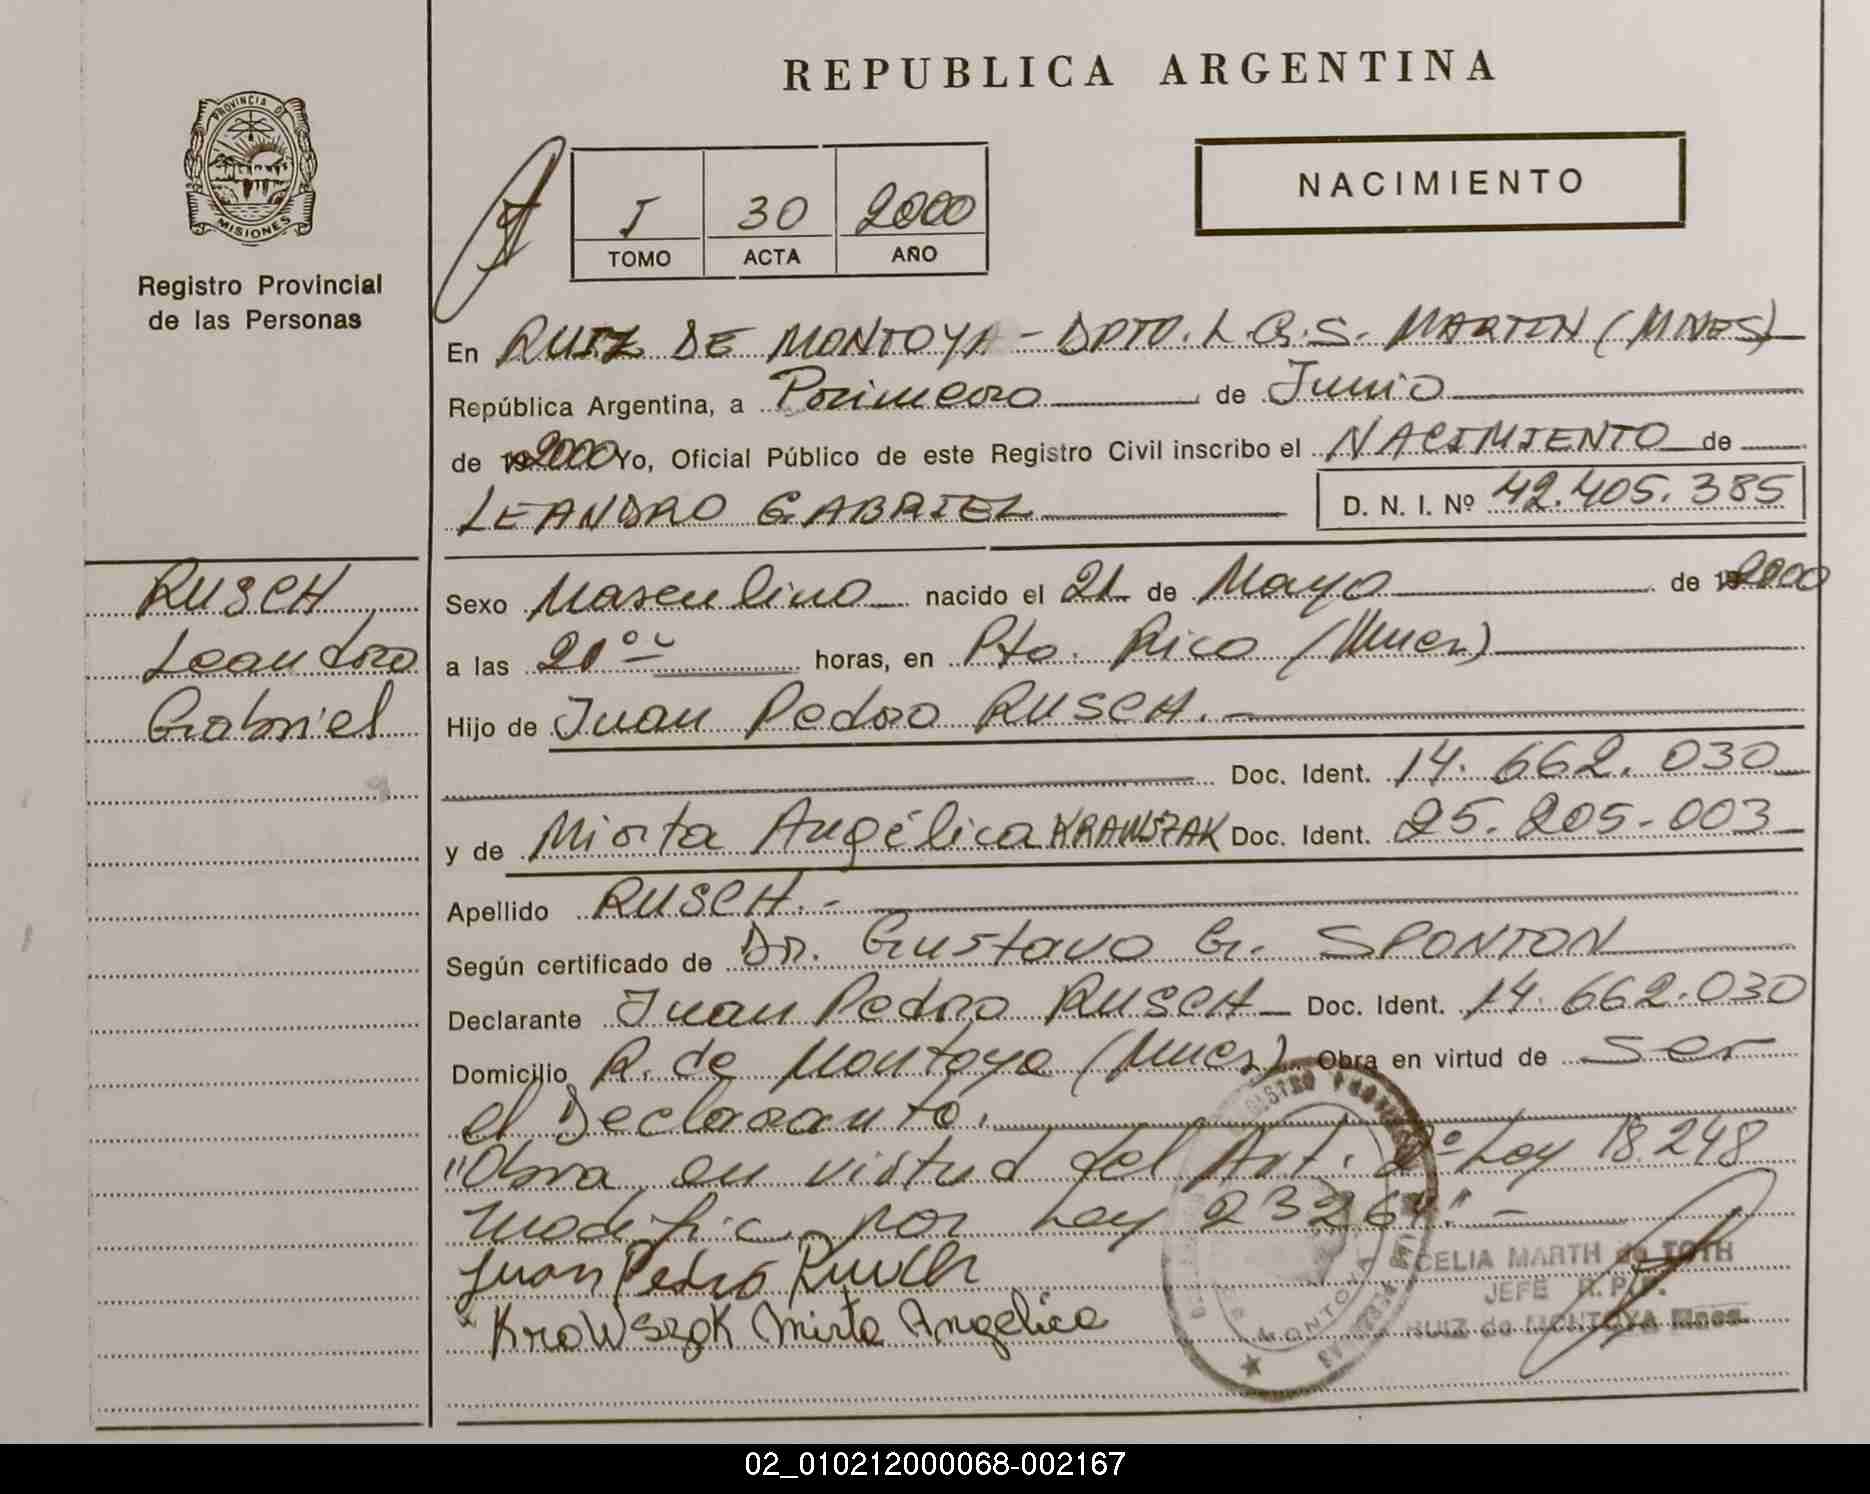 REPUBLICA ARGENTINA
PROVINCIA DE
MISIONES
Registro Provincial
de las Personas
I 30 2000
TOMO ACTA AÑO
NACIMIENTO
En RUIZ DE MONTOYA - DPTO. L. G. S. MARTIN (MNES)
República Argentina, a Primero de Junio
de 2000 Yo, Oficial Público de este Registro Civil inscribo el NACIMIENTO de
LEANDRO GABRIEL D. N. I. Nº 42.405.385
RUSCH
Leandro
Gabriel
Sexo Masculino nacido el 21 de Mayo de 2000
a las 21º horas, en Pto. Rico (Mnes)
Hijo de Juan Pedro RUSCH.-
Doc. Ident. 14.662.030
y de Mirta Angélica KRAWSZAK Doc. Ident. 25.205.003
Apellido RUSCH.-
Según certificado de Dr. Gustavo G. SPONTON
Declarante Juan Pedro RUSCH Doc. Ident. 14.662.030
Domicilio R. de Montoya (Mnes) Obra en virtud de ser
el Declarante.
"Obra en virtud del Art. 2º Ley 18.248
modific. por Ley 23264".-
Juan Pedro Rusch
Krowszak Mirta Angelica
CELIA MARTH de TOTH
JEFE R.P.P.
RUIZ de MONTOYA Mnes.
MONTOYA
02_010212000068-002167